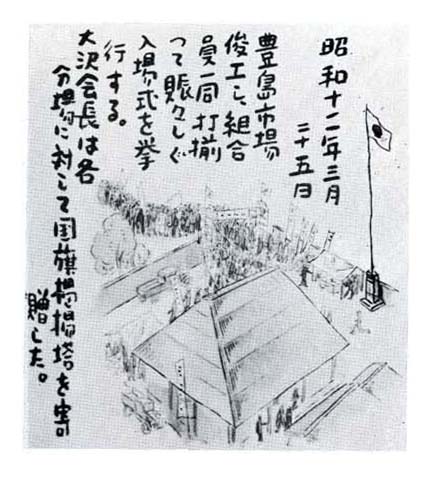 昭和十二年三月
二十五日
豊島市場
俊工し、組合
員一同打揃
って賑々しく
入場式を挙
行する。
大沢会長は各
分場に対して国旗掲揚塔を寄
贈した。